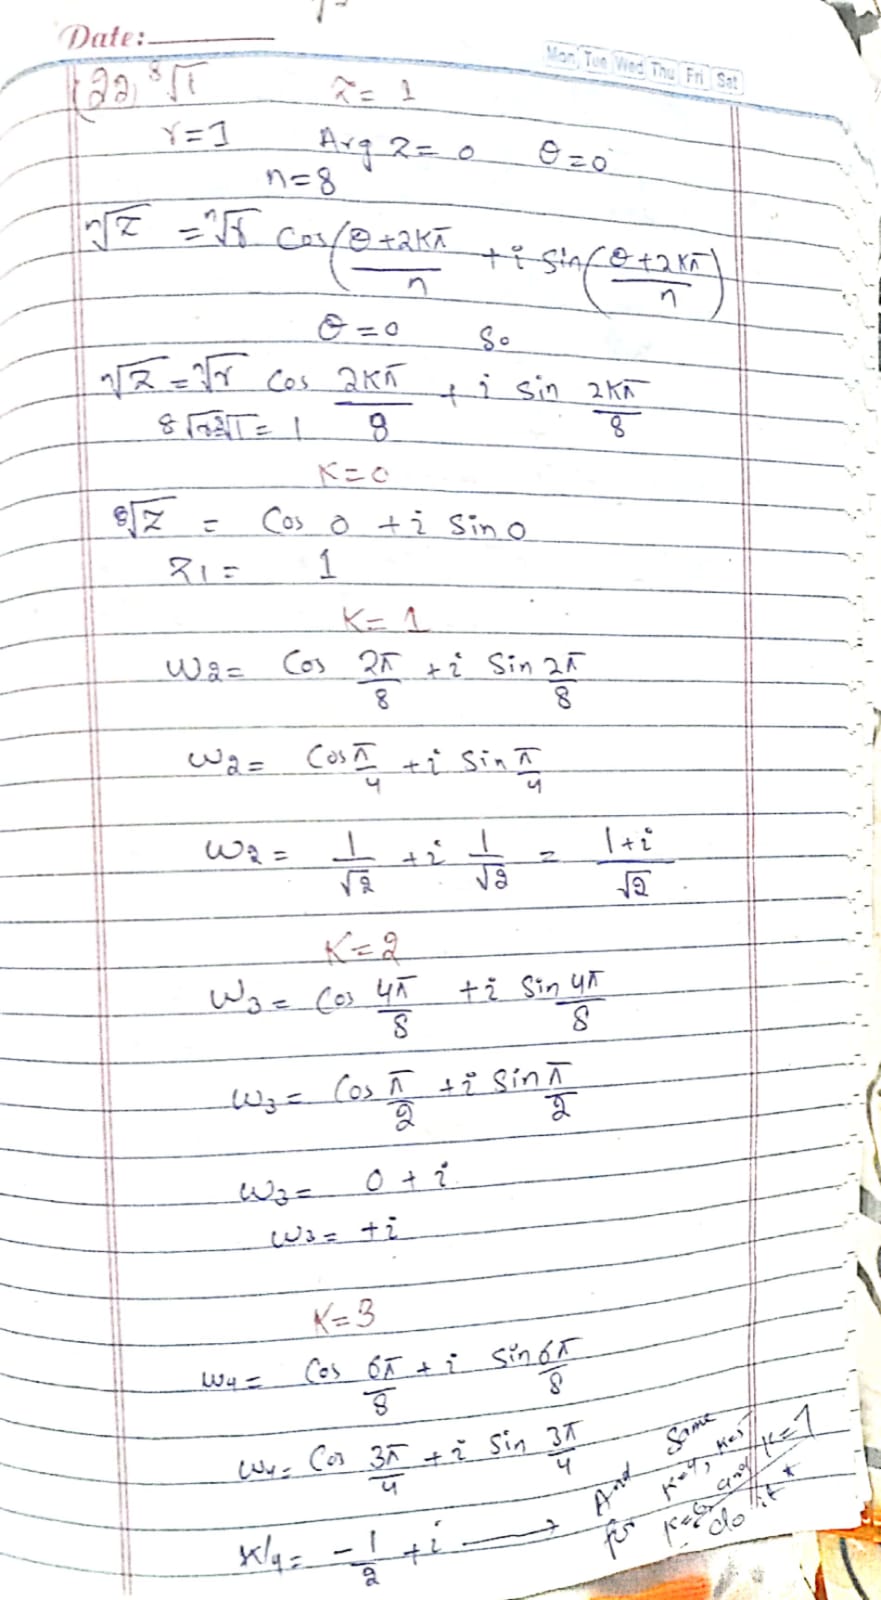 Date:
Mon Tue Wed Thu Fri Sat
(22, ⁸√1 z = 1
r = 1 Arg z = 0 θ = 0
n = 8
ⁿ√z = ⁿ√r Cos(θ+2kπ/n + i sin(θ+2kπ/n)
θ = 0 So
ⁿ√z = ⁿ√r Cos 2kπ/8 + i sin 2kπ/8
= 1
K=0
⁸√z = Cos 0 + i Sin 0
z1 = 1
K= 1
W2= Cos 2π/8 + i Sin 2π/8
W2= Cos π/4 + i Sin π/4
W2 = 1/√2 + i 1/√2 = 1+i/√2
K=2
W3 = Cos 4π/8 + i Sin 4π/8
W3 = Cos π/2 + i Sin π/2
W3= 0 + i
W3 = +i
K=3
W4 = Cos 6π/8 + i Sin 6π/8
W4= Cos 3π/4 + i Sin 3π/4
W4 = -1/2 + i → And Same
for K=4, K=5
K=6 and K=7
do it *